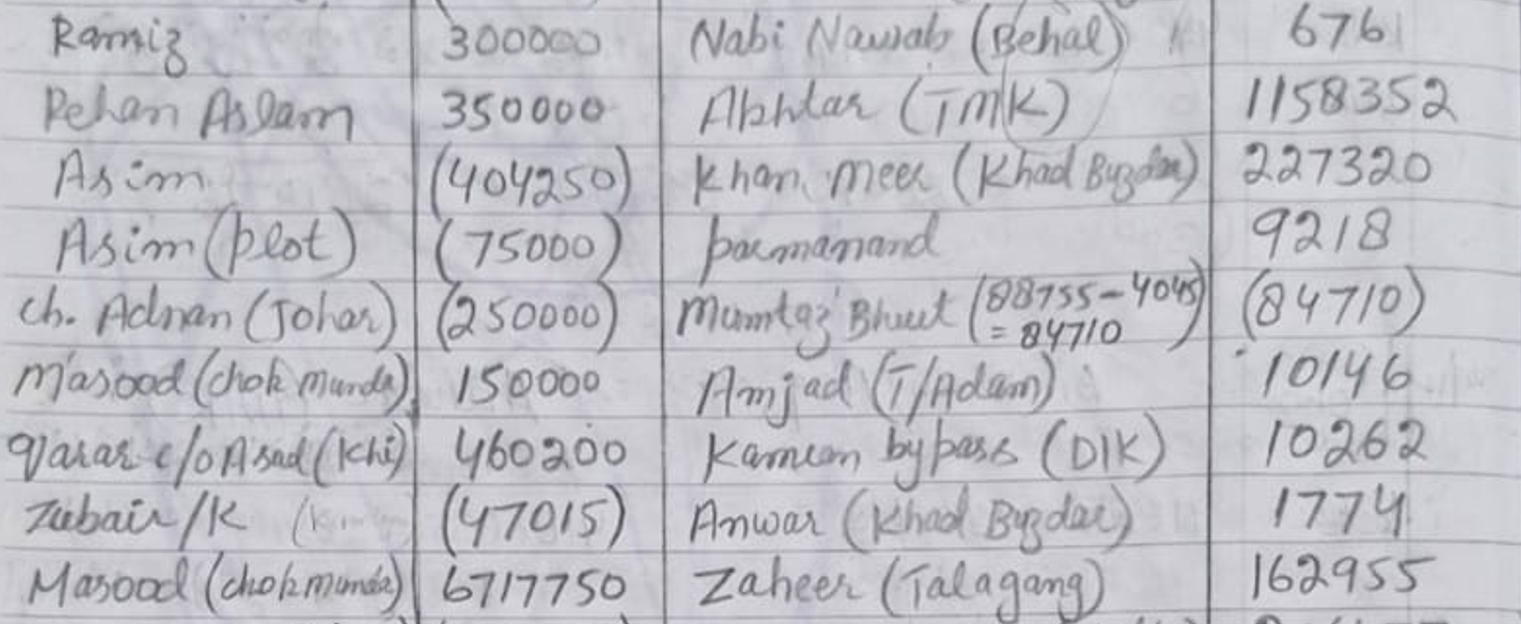 Ramiz 300000 Nabi Nawab (Behal) 676
Rehan Aslam 350000 Akhtar (TMK) 1158352
Asim (404250) Khan Meer (Khad Buzdar) 227320
Asim (plot) (75000) parmanand 9218
Ch. Adnan (Johar) (250000) Mumtaz Bhut (88755-4045 = 84710) (84710)
Masood (chok munda) 150000 Amjad (T/Adam) 10146
Qarar c/o Asad (Khi) 460200 Kamran bypass (DIK) 10262
Zubair/K (47015) Anwar (Khad Buzdar) 1774
Masood (chok munda) 6717750 Zaheer (Talagang) 162955